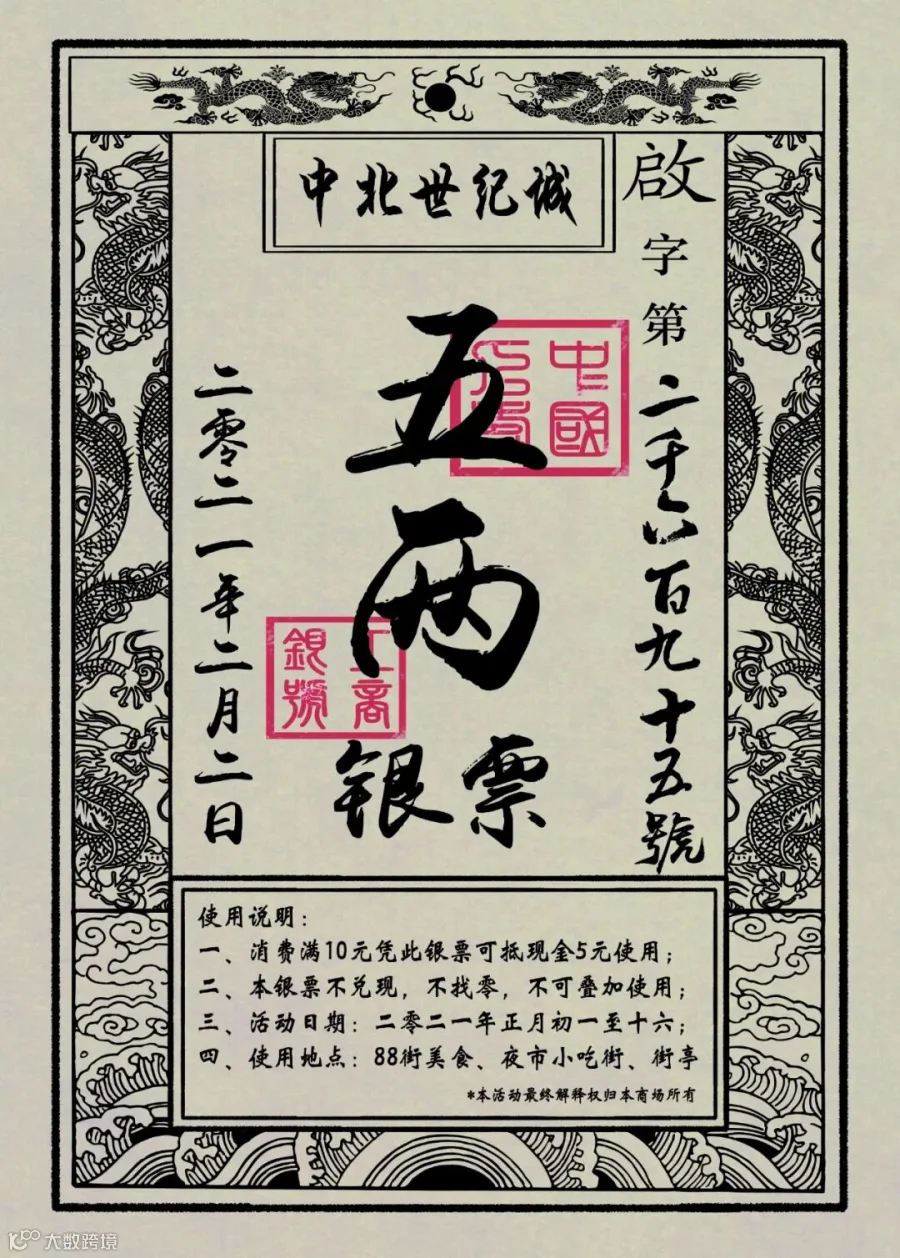 中北世纪城
啟字第二千六百九十五號
五两
银票
二零二一年二月二日
中國
工商
銀號
使用说明：
一、消费满10元凭此银票可抵现金5元使用；
二、本银票不兑现，不找零，不可叠加使用；
三、活动日期：二零二一年正月初一至十六；
四、使用地点：88街美食、夜市小吃街、街亭
*本活动最终解释权归本商场所有
大数跨境